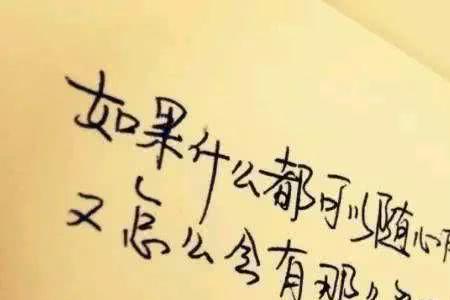 如果什么都可以随心
又怎么会有那